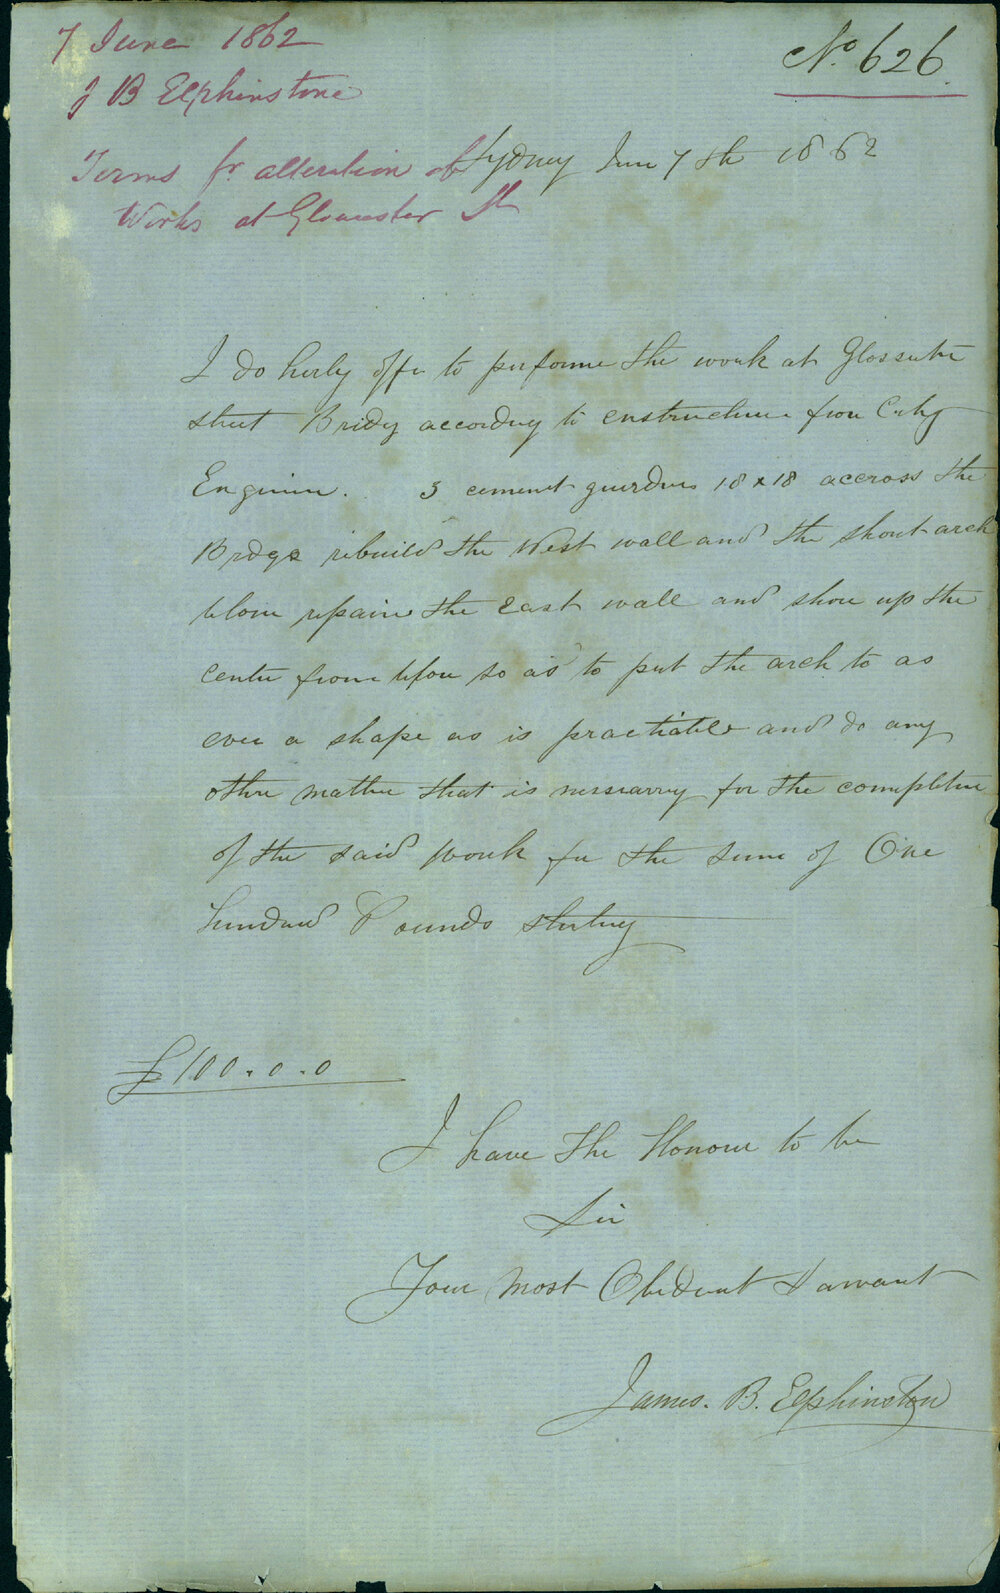 7 June 1862
J B Elphinstone
Terms for alteration of
Works at Gloucester St
No. 626
Sydney June 7th 1862
I do herby offer to performe the work at Glossester
street Bridg according to enstructions from City
Enginer. 3 cement guirders 18 x 18 accross the
Brdge rebuild the West wall and the short arch
below repaire the East wall and shore up the
center from below so as to put the arch to as
even a shape as is practiable and do any
other matter that is nessarry for the completion
of the said work for the sum of One
hundred Pounds sterling
£100.0.0
I have the Honour to be
Sir
Your Most Obedient Sarvant
James. B. Elphinston